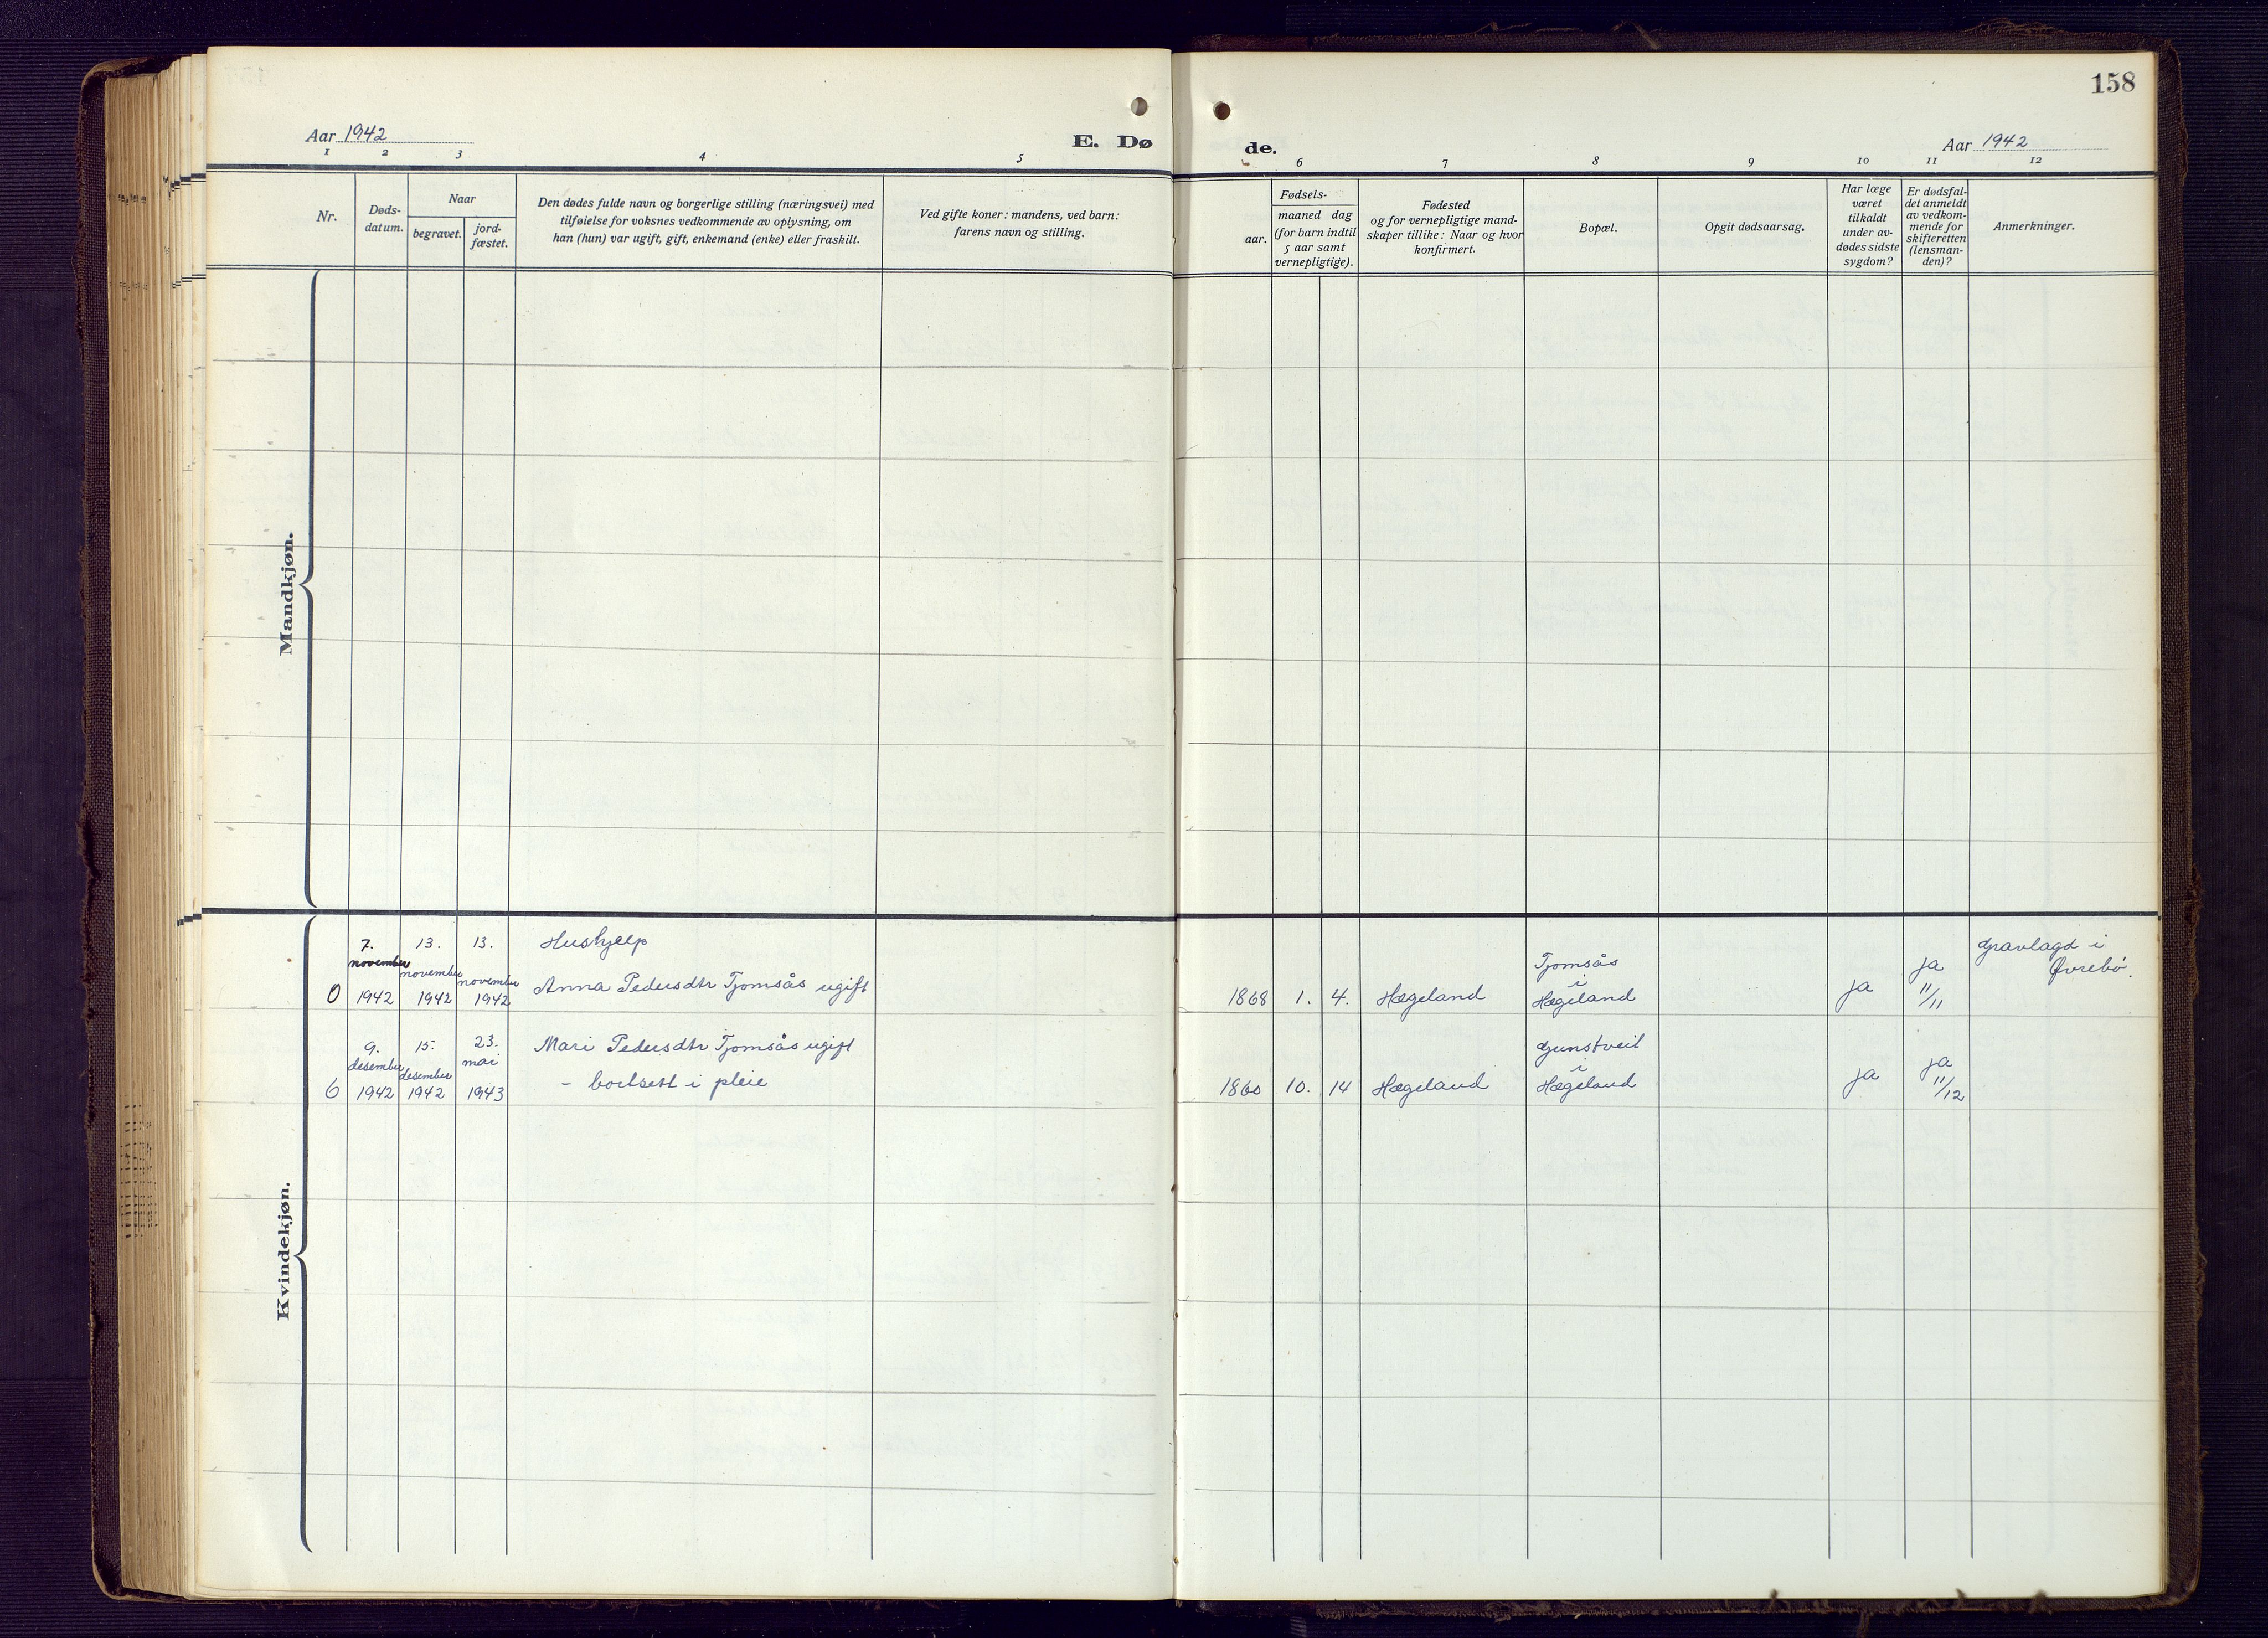 158
Aar 1942
E. Dø
de.
Aar 1942
1 2 3 4 5
6 7 8 9 10 11 12
Nr.
Døds-
datum.
Naar
begravet.
jord-
fæstet.
Den dødes fulde navn og borgerlige stilling (næringsvei) med
tilføielse for voksnes vedkommende av oplysning, om
han (hun) var ugift, gift, enkemand (enke) eller fraskilt.
Ved gifte koner: mandens, ved barn:
farens navn og stilling.
aar.
Fødsels-
maaned dag
(for barn indtil
5 aar samt
vernepligtige).
Fødested
og for vernepligtige mand-
skaper tillike: Naar og hvor
konfirmert.
Bopæl.
Opgit dødsaarsag.
Har læge
været
tilkaldt
under av-
dødes sidste
sygdom?
Er dødsfal-
det anmeldt
av vedkom-
mende for
skifteretten
(lensman-
den)?
Anmerkninger.
Mandkjøn.
Kvindekjøn.
7. 13. 13. Hushjelp
november november november
0 1942 1942 1942 Anna Pedersdtr Tjomsås ugift
Tjomsås
i
1868 1. 4. Hægeland Hægeland ja
ja
11/11
Gravlagd i
Øvrebø.
9. 15. 23. Mari Pedersdtr Tjomsås ugift
desember desember mai
6 1942 1942 1943 – bortsett i pleie
Gunstveit
i
1860 10. 14 Hægeland Hægeland ja
ja
11/12